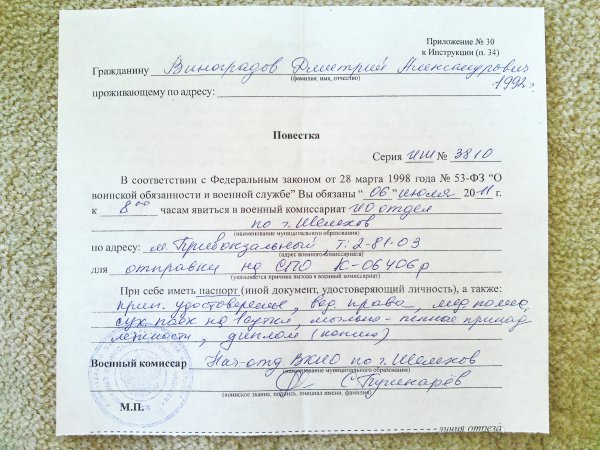 Приложение № 30
к Инструкции (п. 34)
Гражданину Виноградов Дмитрий Александрович
(фамилия, имя, отчество)
1992г.
проживающему по адресу:
Повестка
Серия ИШ № 3810
В соответствии с Федеральным законом от 28 марта 1998 года № 53-ФЗ “О
воинской обязанности и военной службе” Вы обязаны “06” июля 2011 г.
к 8 00 часам явиться в военный комиссариат ИО отдел
по г. Шелехов
(наименование муниципального образования)
по адресу: м. Привокзальный т: 2-81-03
(адрес военного комиссариата)
для отправки на СПО К-06406р
(указывается причина вызова в военный комиссариат)
При себе иметь паспорт (иной документ, удостоверяющий личность), а также:
прип. удостоверения, вод права, мед полис,
сух. паек на 1 сутки, мыльно-пенные принад
лежности, диплом (копию)
Военный комиссар Нач-отд ВКИО по г. Шелехов
(наименование муниципального образования)
С Пушкарёв
(воинское звание, подпись, инициал имени, фамилия)
М.П.
линия отреза